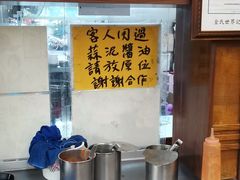 客人用過
蒜泥醬油
請放原位
謝謝合作
金氏世界記